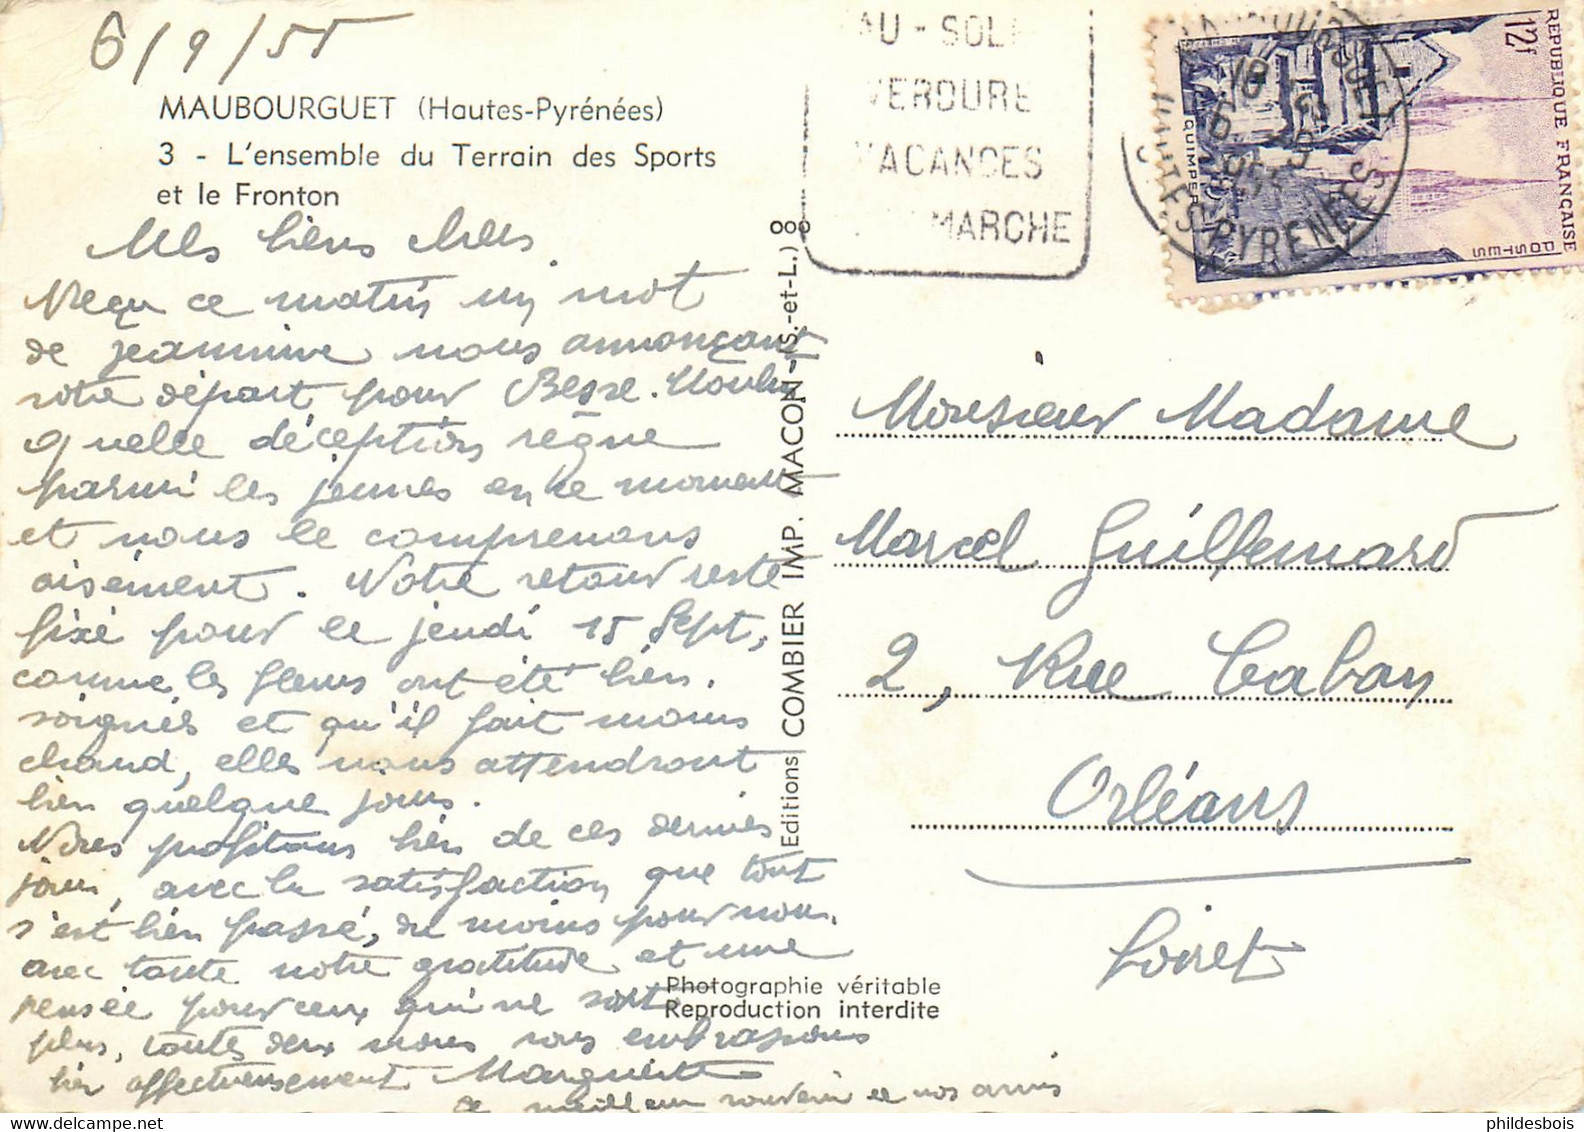 6/9/55
MAUBOURGUET (Hautes-Pyrénées)
3 - L'ensemble du Terrain des Sports
et le Fronton
Mes biens chers.
Reçu ce matin un mot
de Jeannine nous annonçant
votre départ pour Besse. Moulin
quelle déception règne
parmi les jeunes en ce moment
et nous le comprenons
aisément. Notre retour reste
fixé pour le jeudi 15 Sept,
comme les fleurs ont été bien.
soignés et qu'il fait moins
chaud, elles nous attendront
bien quelque jours.
Nous profitons bien de ces derniers
jours, avec la satisfaction que tout
s'est bien passé, du moins pour nous.
avec toute notre gratitude et une
pensée pour ceux qui ne sont
plus, toutes deux nous vous embrassons
bien affectueusement Marguerite
meilleur souvenir à nos amis
Editions COMBIER IMP. MACON (S.-et-L.)
Photographie véritable
Reproduction interdite
AU-SOL
VERDURE
VACANCES
MARCHE
HAUTES-PYRENEES
REPUBLIQUE FRANÇAISE
POSTES
12f
QUIMPER
Monsieur Madame
Marcel Guillemard
2, Rue Caban
Orléans
Loiret
phildesbois